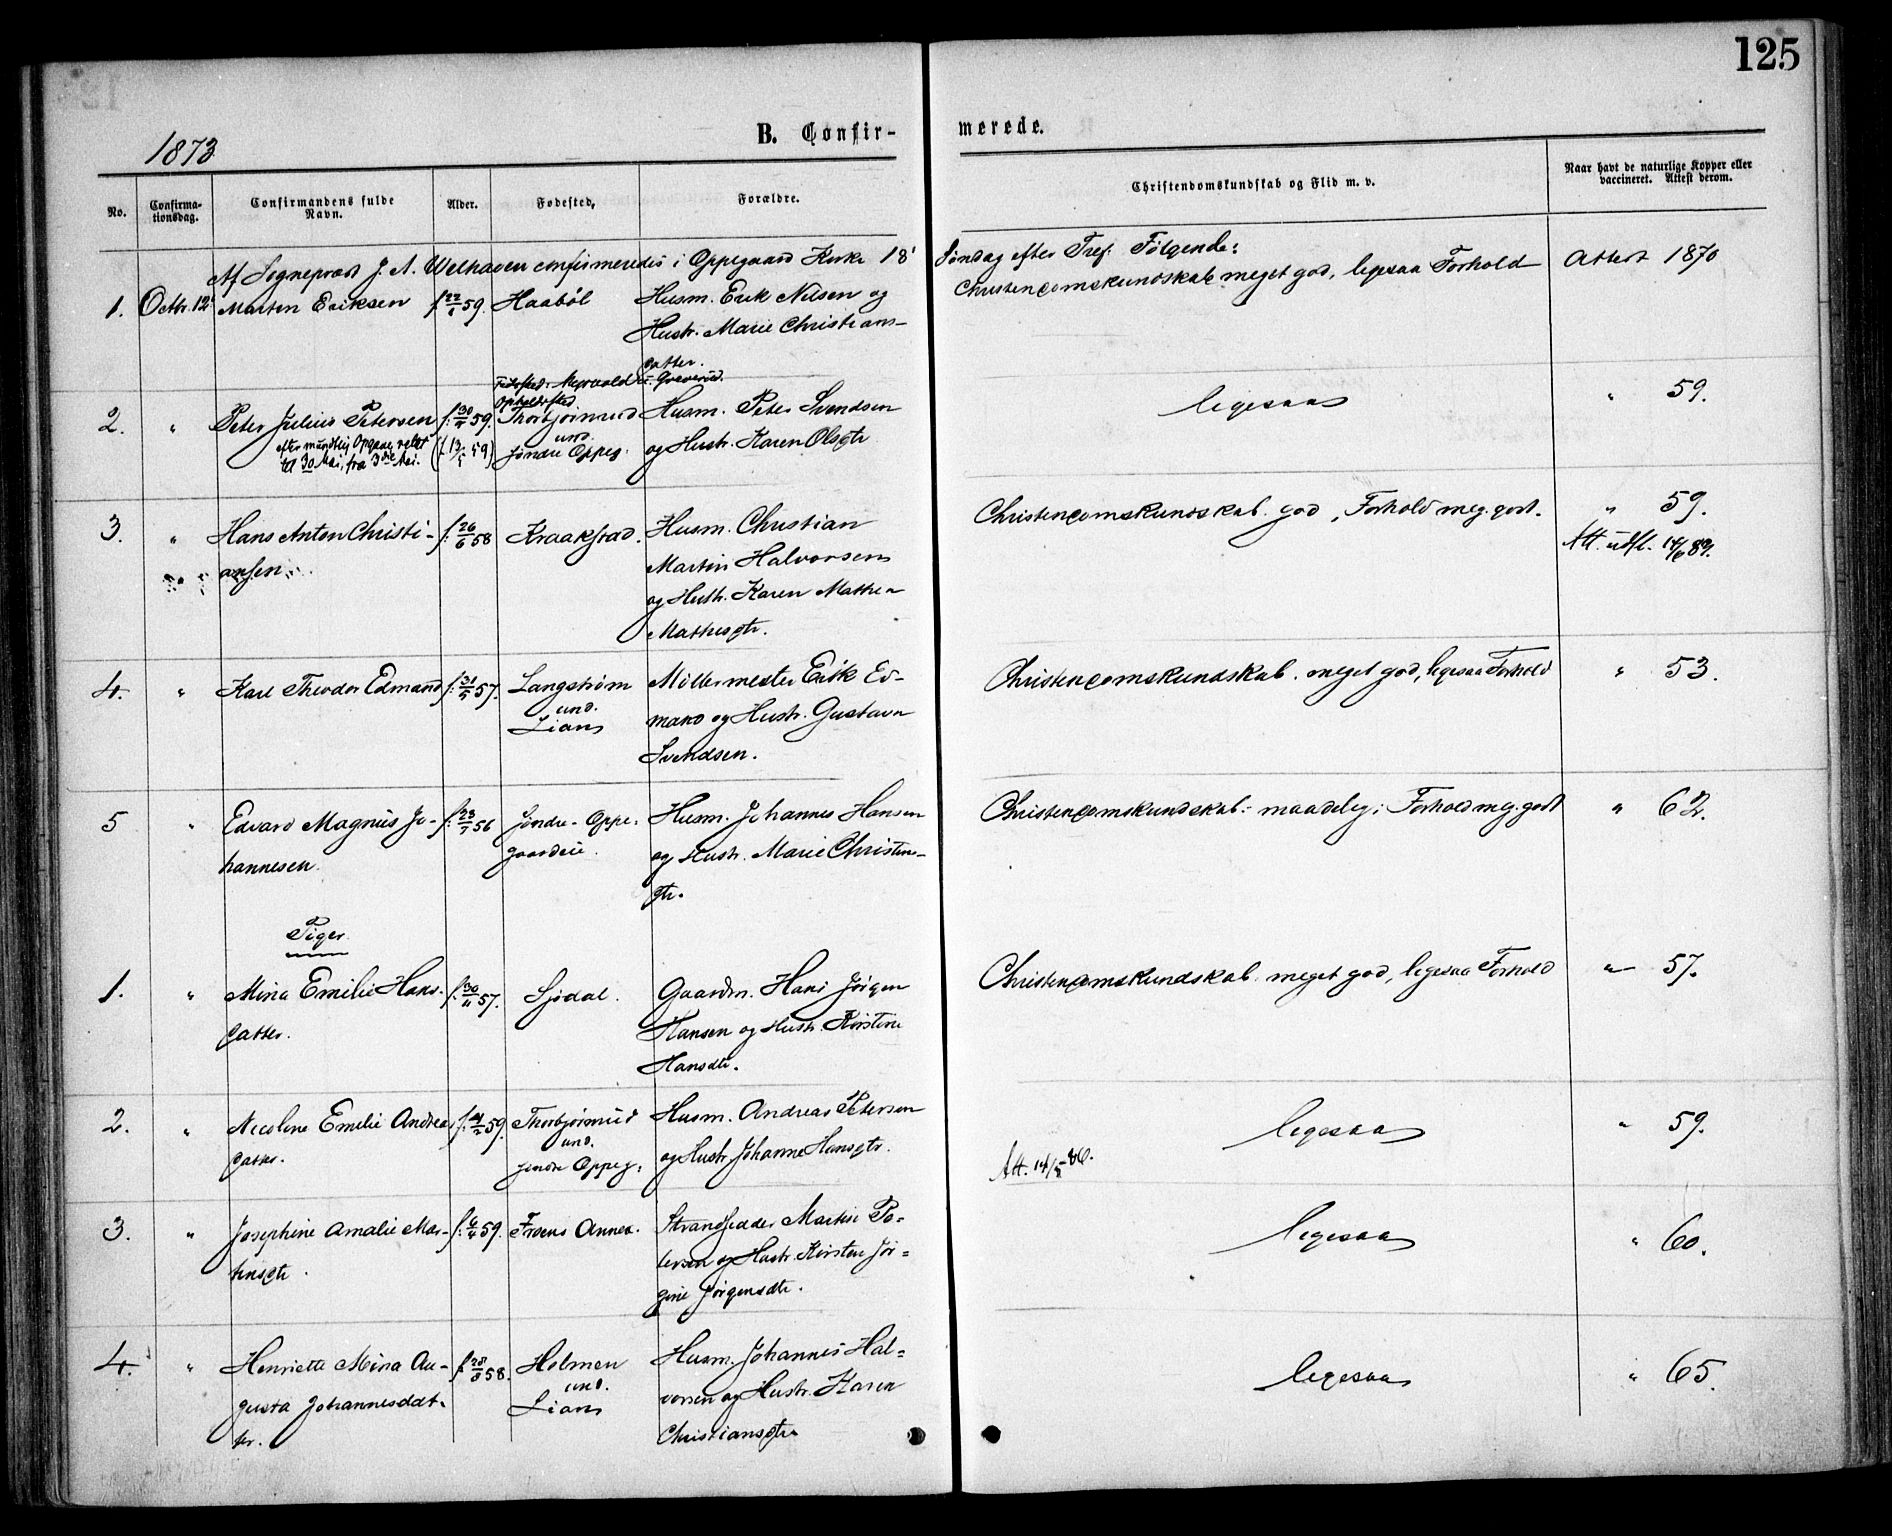 125
1873
B. Confir-
merede.
No.
Confirma-
tionsdag.
Confirmandens fulde
Navn.
Alder.
Fødested,
Forældre.
Christendomskundskab og Flid m. v.
Naar havt de naturlige Kopper eller
vaccineret. Attest derom.
Af Sognepræst J. A. Welhaven confirmeredes i Oppegaard Kirke 18' Søndag efter Tref. Følgende:
1. Octbr. 12' Martin Eriksen f 22/1 59. Haabøl Husm. Erik Nilsen og Christendomskundskab meget god, ligesaa Forhold Attest 1870
Hustr. Marie Christians-
datter.
Fødested. Greverud.
Opholdssted
2. " Peter Julius Petersen f. 59. Thorbjørnrud Husm. Peter Svendsen ligesaa " 59.
efter mundtlig Opgave rettet (f. 59) und. og Hustr. Karen Olsdtr
til 30 Mai, fra 3die Mai. Søndre Oppeg.
3. " Hans Anton Christi- f. 26/6 58 Kraakstad. Husm. Christian Christendomskundskab. god, Forhold meg. godt. " 59.
ansen Martin Halvorsen Att. udst. 14/6 89.
og Hustr. Karen Mathea
Mathisdtr.
4. " Karl Theodor Edmand f. 31/5 57. Langstrøm Møllermester Erik Ed- Christendomskundskab. meget god, ligesaa Forhold " 53.
und. mand og Hustr. Gustava
Lian Svendsen.
5 " Edvard Magnus Jo- f. 23/7 56 Søndre-Oppe- Husm. Johannes Hansen Christendomskundskab: maadelig; Forhold meg. godt " 62.
hannesen. gaardeie. og Hustr. Marie Christens-
dtr.
Piger
1. " Mina Emilie Hans- f. 30/11 57. Sjødal. Gaardm. Hans Jørgen Christendomskundskab. meget god, ligesaa Forhold " 57.
datter. Hansen og Hustr. Kirstine
Hansdtr.
2. " Nicoline Emilie Andreas f. 59. Thorbjørnrud Husm. Andreas Petersen ligesaa " 59.
datter. und. og Hustr. Johanne Hansdtr.
Søndre Oppeg. Att. 14/5 86.
3. " Josephine Amalie Mar- f. 6/4 59. Froens Annex. Strandsidder Martin Pe- ligesaa " 60.
tinsdtr. tersen og Hustr. Kirsten Jør-
gine Jørgensdtr.
4. " Henriette Mina Au- f. 58. Holmen Husm. Johannes Hal- ligesaa " 65.
gusta Johannesdat- und. vorsen og Hustr. Karen
ter. Lian Christiansdtr